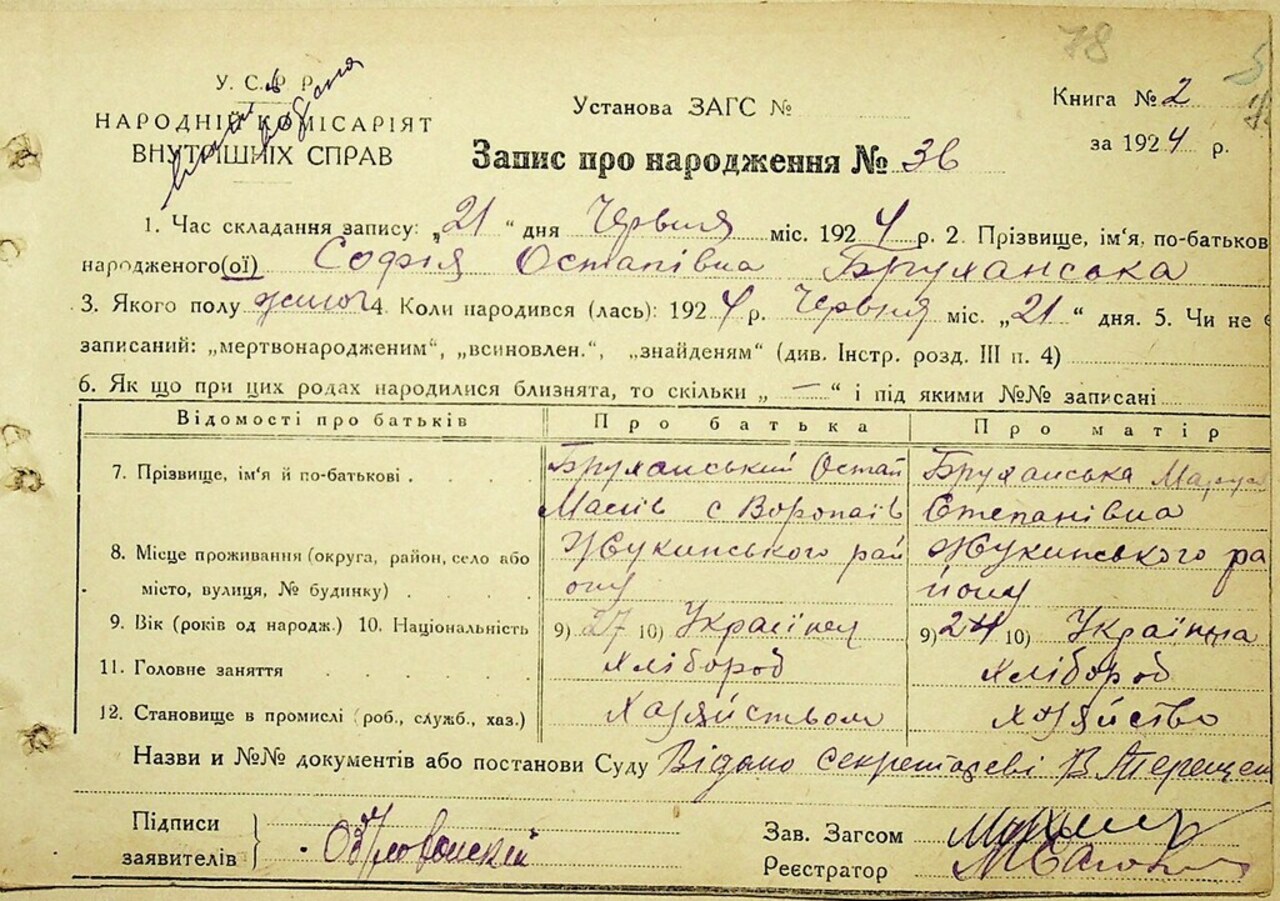 78
У. С. Р. Р.
НАРОДНІЙ КОМІСАРІЯТ
ВНУТРІШНІХ СПРАВ
Установа ЗАГС №
Книга № 2
за 1924 р.
Запис про народження № 36
1. Час складання запису: „21“ дня Червня міс. 1924 р. 2. Прізвище, ім'я, по-батьков
народженого(ої) Софія Остапівна Бруханська
3. Якого полу жіноч 4. Коли народився (лась): 1924 р. Червня міс. „21“ дня. 5. Чи не є
записаний: „мертвонародженим“, „всиновлен.“, „знайденям“ (див. Інстр. розд. III п. 4)
6. Як що при цих родах народилися близнята, то скільки „—“ і під якими №№ записані
Відомості про батьків Про батька Про матір
7. Прізвище, ім'я й по-батькові Бруханський Остап Бруханська
с Воропаїв Степанівна
8. Місце проживання (округа, район, село або Жукинського рай Жукинського ра
місто, вулиця, № будинку) ону йону
9. Вік (років од народж.) 10. Національність 9) 27 10) Українец 9) 24 10) Українка
11. Головне заняття хлібороб хлібороб
12. Становище в промислі (роб., служб., хаз.) хазяйством хазяйство
Назви и №№ документів або постанови Суду Видано Секретареві В. Терещен
Підписи
заявителів
Зав. Загсом
Реєстратор